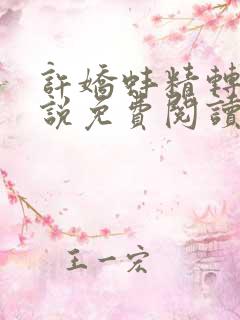 許嬌蚌精轉
說免費閱讀
王一宏